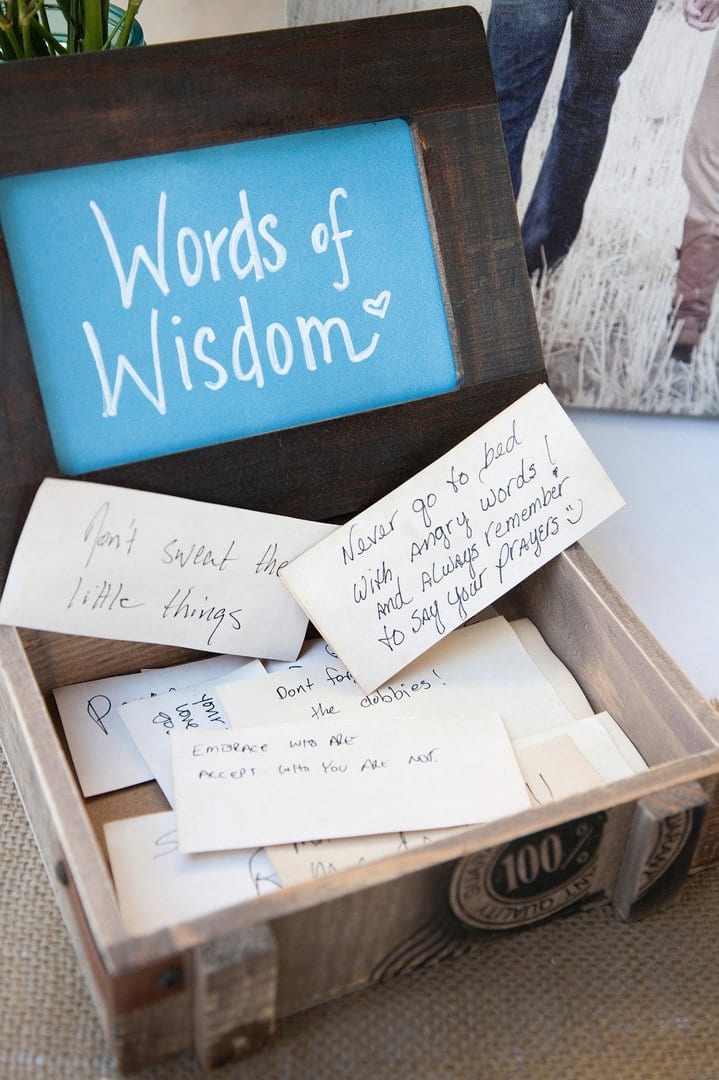 Words of
Wisdom
Don't sweat the
little things
Never go to bed
with angry words!
and always remember
to say your prayers
Dont for
the dobbies!
your
love
EMBRACE WHO ARE
ACCEPT WHO YOU ARE NOT.
100%
QUALITY